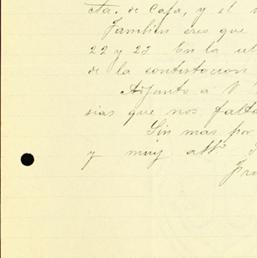 cta. de Caja, y el
Tambien creo que
22 y 23. En la ult
de la contestacion
Adjunto a V.
sias que nos falta
Sin mas por
y muy attº S
Fra